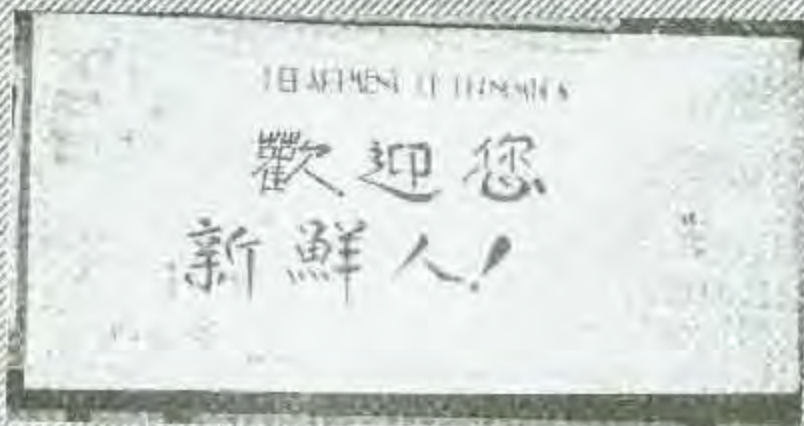 DEPARTMENT OF ECONOMICS
歡迎您
新鮮人!